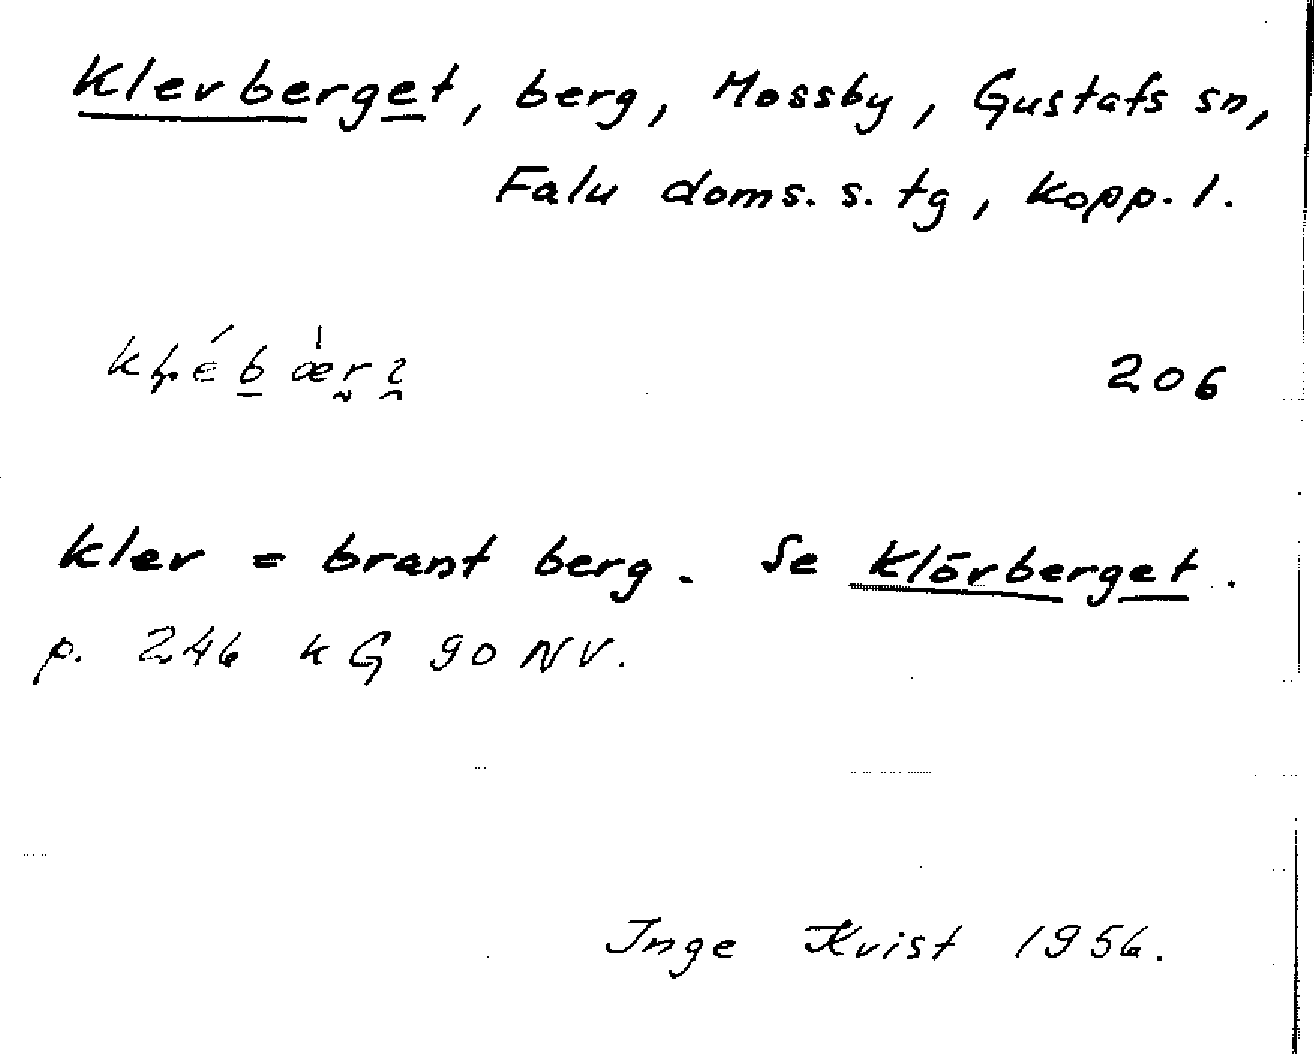 Klevberget, berg, Mossby, Gustafs sn,
Falu doms. s. tg, Kopp. l.
206
klev = brant berg. Se Klövberget.
p. 246 k G 90 NV.
Inge Kvist 1956.